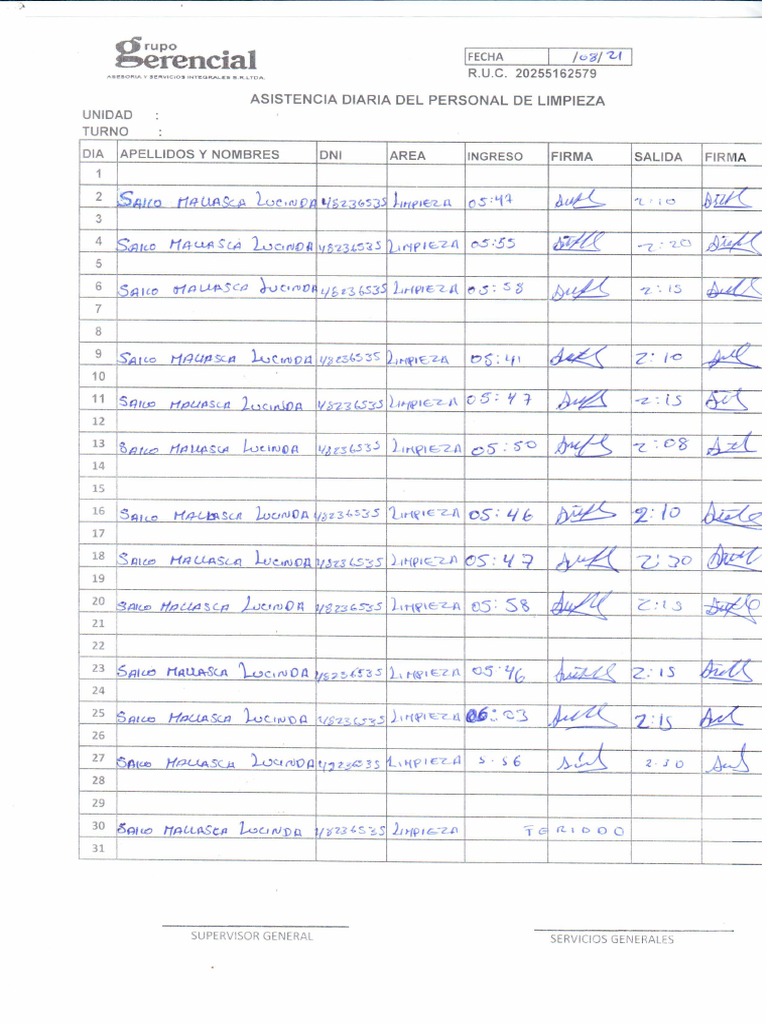 grupo
Gerencial
ASESORIA Y SERVICIOS INTEGRALES S.R.LTDA.
FECHA /08/21
R.U.C. 20255162579
ASISTENCIA DIARIA DEL PERSONAL DE LIMPIEZA
UNIDAD :
TURNO :
DIA APELLIDOS Y NOMBRES DNI AREA INGRESO FIRMA SALIDA FIRMA
1
2 SAICO MALLASCA LUCINDA 48236535 LIMPIEZA 05:47 2:10
3
4 SAICO MALLASCA LUCINDA 48236535 LIMPIEZA 05:55 2:20
5
6 SAICO MALLASCA LUCINDA 48236535 LIMPIEZA 05:58 2:15
7
8
9 SAICO MALLASCA LUCINDA 48236535 LIMPIEZA 05:41 2:10
10
11 SAICO MALLASCA LUCINDA 48236535 LIMPIEZA 05:47 2:15
12
13 SAICO MALLASCA LUCINDA 48236535 LIMPIEZA 05:50 2:08
14
15
16 SAICO MALLASCA LUCINDA 48236535 LIMPIEZA 05:46 2:10
17
18 SAICO MALLASCA LUCINDA 48236535 LIMPIEZA 05:47 2:30
19
20 SAICO MALLASCA LUCINDA 48236535 LIMPIEZA 05:58 2:15
21
22
23 SAICO MALLASCA LUCINDA 48236535 LIMPIEZA 05:46 2:15
24
25 SAICO MALLASCA LUCINDA 48236535 LIMPIEZA 06:03 2:15
26
27 SAICO MALLASCA LUCINDA LIMPIEZA 5:56
28
29
30 SAICO MALLASCA LUCINDA 48236535 LIMPIEZA
31
SUPERVISOR GENERAL SERVICIOS GENERALES